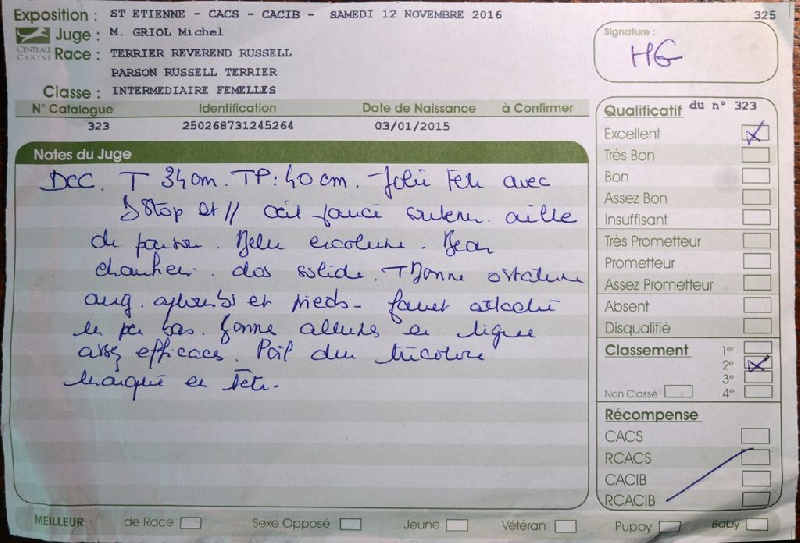 Exposition : ST ETIENNE - CACS - CACIB - SAMEDI 12 NOVEMBRE 2016
325
Juge : M. GRIOL Michel
CENTRALE CANINE
Race : TERRIER REVEREND RUSSELL
PARSON RUSSELL TERRIER
Classe : INTERMEDIAIRE FEMELLES
Signature :
HG
N° Catalogue Identification Date de Naissance à Confirmer
323 250268731245264 03/01/2015
Notes du Juge
Dcc. T 34cm. TP: 40 cm. Jolie tête avec
Stop et // œil foncé
Belle encolure. Beau
dos solide. TBonne ossature
ang. et pieds. fouet attaché
un peu bas. Bonne allures en ligne
assez efficaces. Poil dur tricolore
marquée en tête.
Qualificatif du n° 323
Excellent
Très Bon
Bon
Assez Bon
Insuffisant
Très Prometteur
Prometteur
Assez Prometteur
Absent
Disqualifié
Classement 1er
2e
3e
Non Classé 4e
Récompense
CACS
RCACS
CACIB
RCACIB
MEILLEUR : de Race Sexe Opposé Jeune Vétéran Puppy Baby